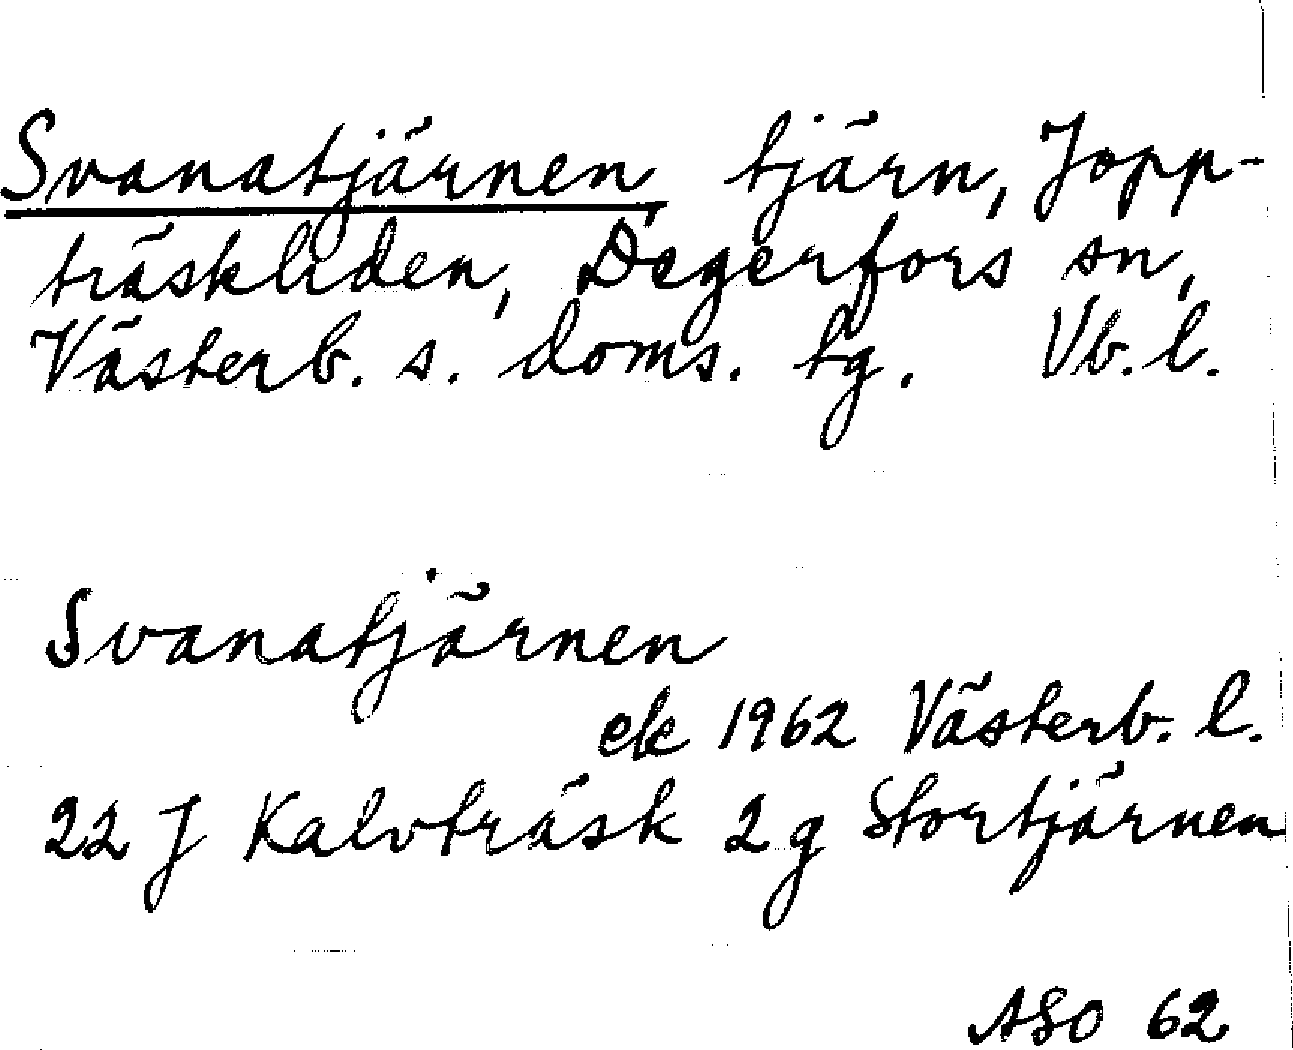 Svanatjärnen tjärn, Jopp-
träskliden, Degerfors sn,
Västerb. s. doms. tg. Vb. l.
Svanatjärnen
ek 1962 Västerb. l.
22 J Kalvträsk 2 g Stortjärnen
ASO 62